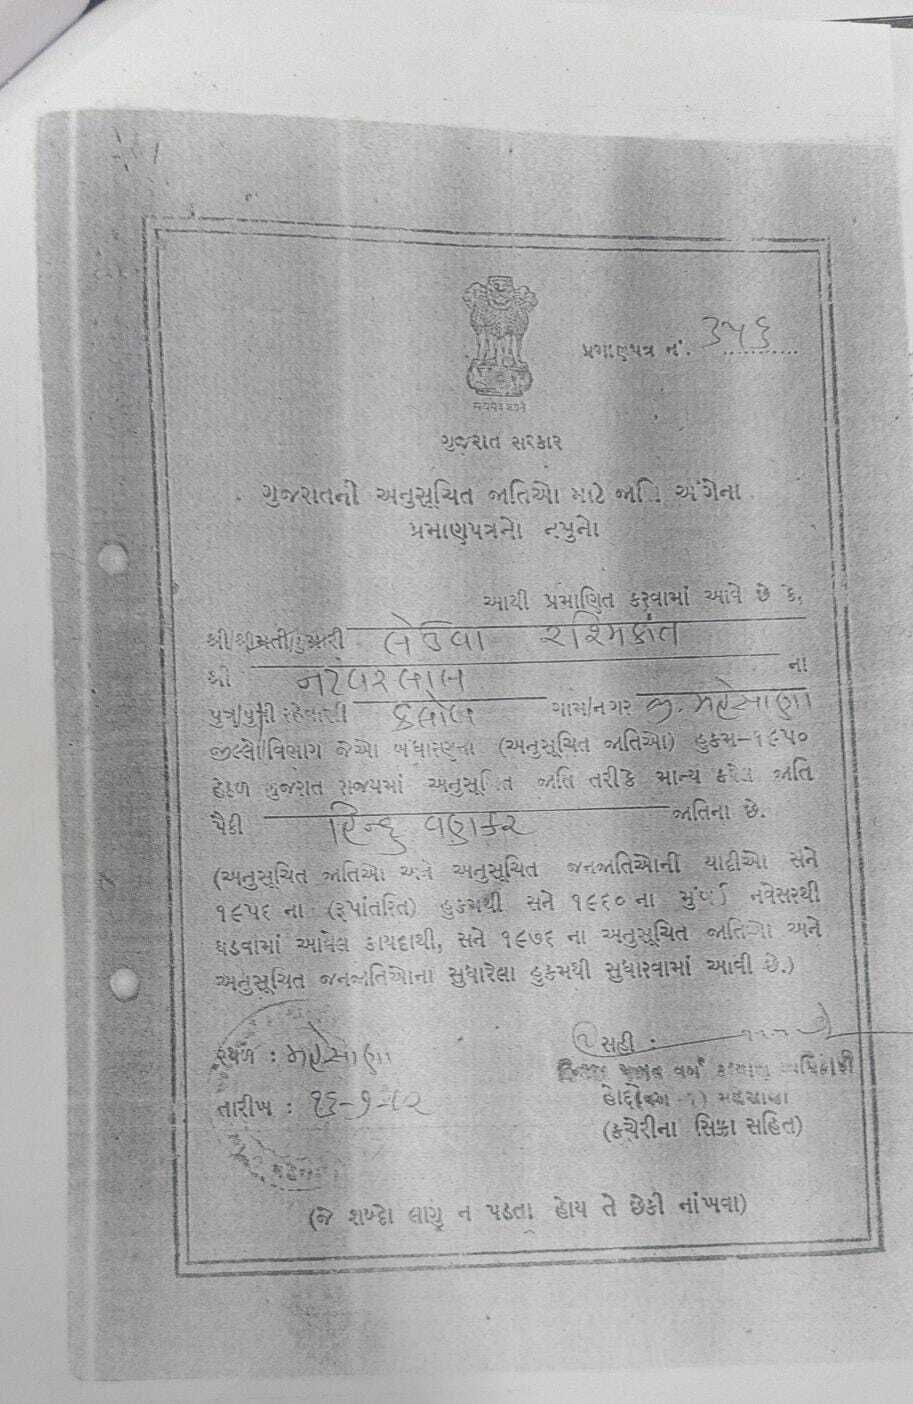 સત્યમેવ જયતે
પ્રમાણપત્ર નં. ૩૫૬
ગુજરાત સરકાર
ગુજરાતની અનુસૂચિત જાતિઓ માટે જાતિ અંગેના
પ્રમાણપત્રનો નમુનો
આથી પ્રમાણિત કરવામાં આવે છે કે,
શ્રી/શ્રીમતી/કુમારી લેઉવા રશ્મિકાંત
શ્રી નટવરલાલ ના
પુત્ર/પુત્રી રહેવાસી કલોલ ગામ/નગર જી. મહેસાણા
જીલ્લો/વિભાગ જેઓ બંધારણના (અનુસૂચિત જાતિઓ) હુકમ-૧૯૫૦
હેઠળ ગુજરાત રાજ્યમાં અનુસૂચિત જાતિ તરીકે માન્ય કરેલ જાતિ
પૈકી હિન્દુ વણકર જાતિના છે.
(અનુસૂચિત જાતિઓ અને અનુસૂચિત જનજાતિઓની યાદીઓ સને
૧૯૫૬ ના (રૂપાંતરિત) હુકમથી સને ૧૯૬૦ ના મુંબઈ નવેસરથી
ઘડવામાં આવેલ કાયદાથી, સને ૧૯૭૬ ના અનુસૂચિત જાતિઓ અને
અનુસૂચિત જનજાતિઓના સુધારેલા હુકમથી સુધારવામાં આવી છે.)
સ્થળ : મહેસાણા
સહી :
વર્ગ કલ્યાણ અધિકારી
તારીખ :
હોદ્દો મહેસાણા
(કચેરીના સિક્કા સહિત)
(જે શબ્દો લાગુ ન પડતા હોય તે છેકી નાંખવા)